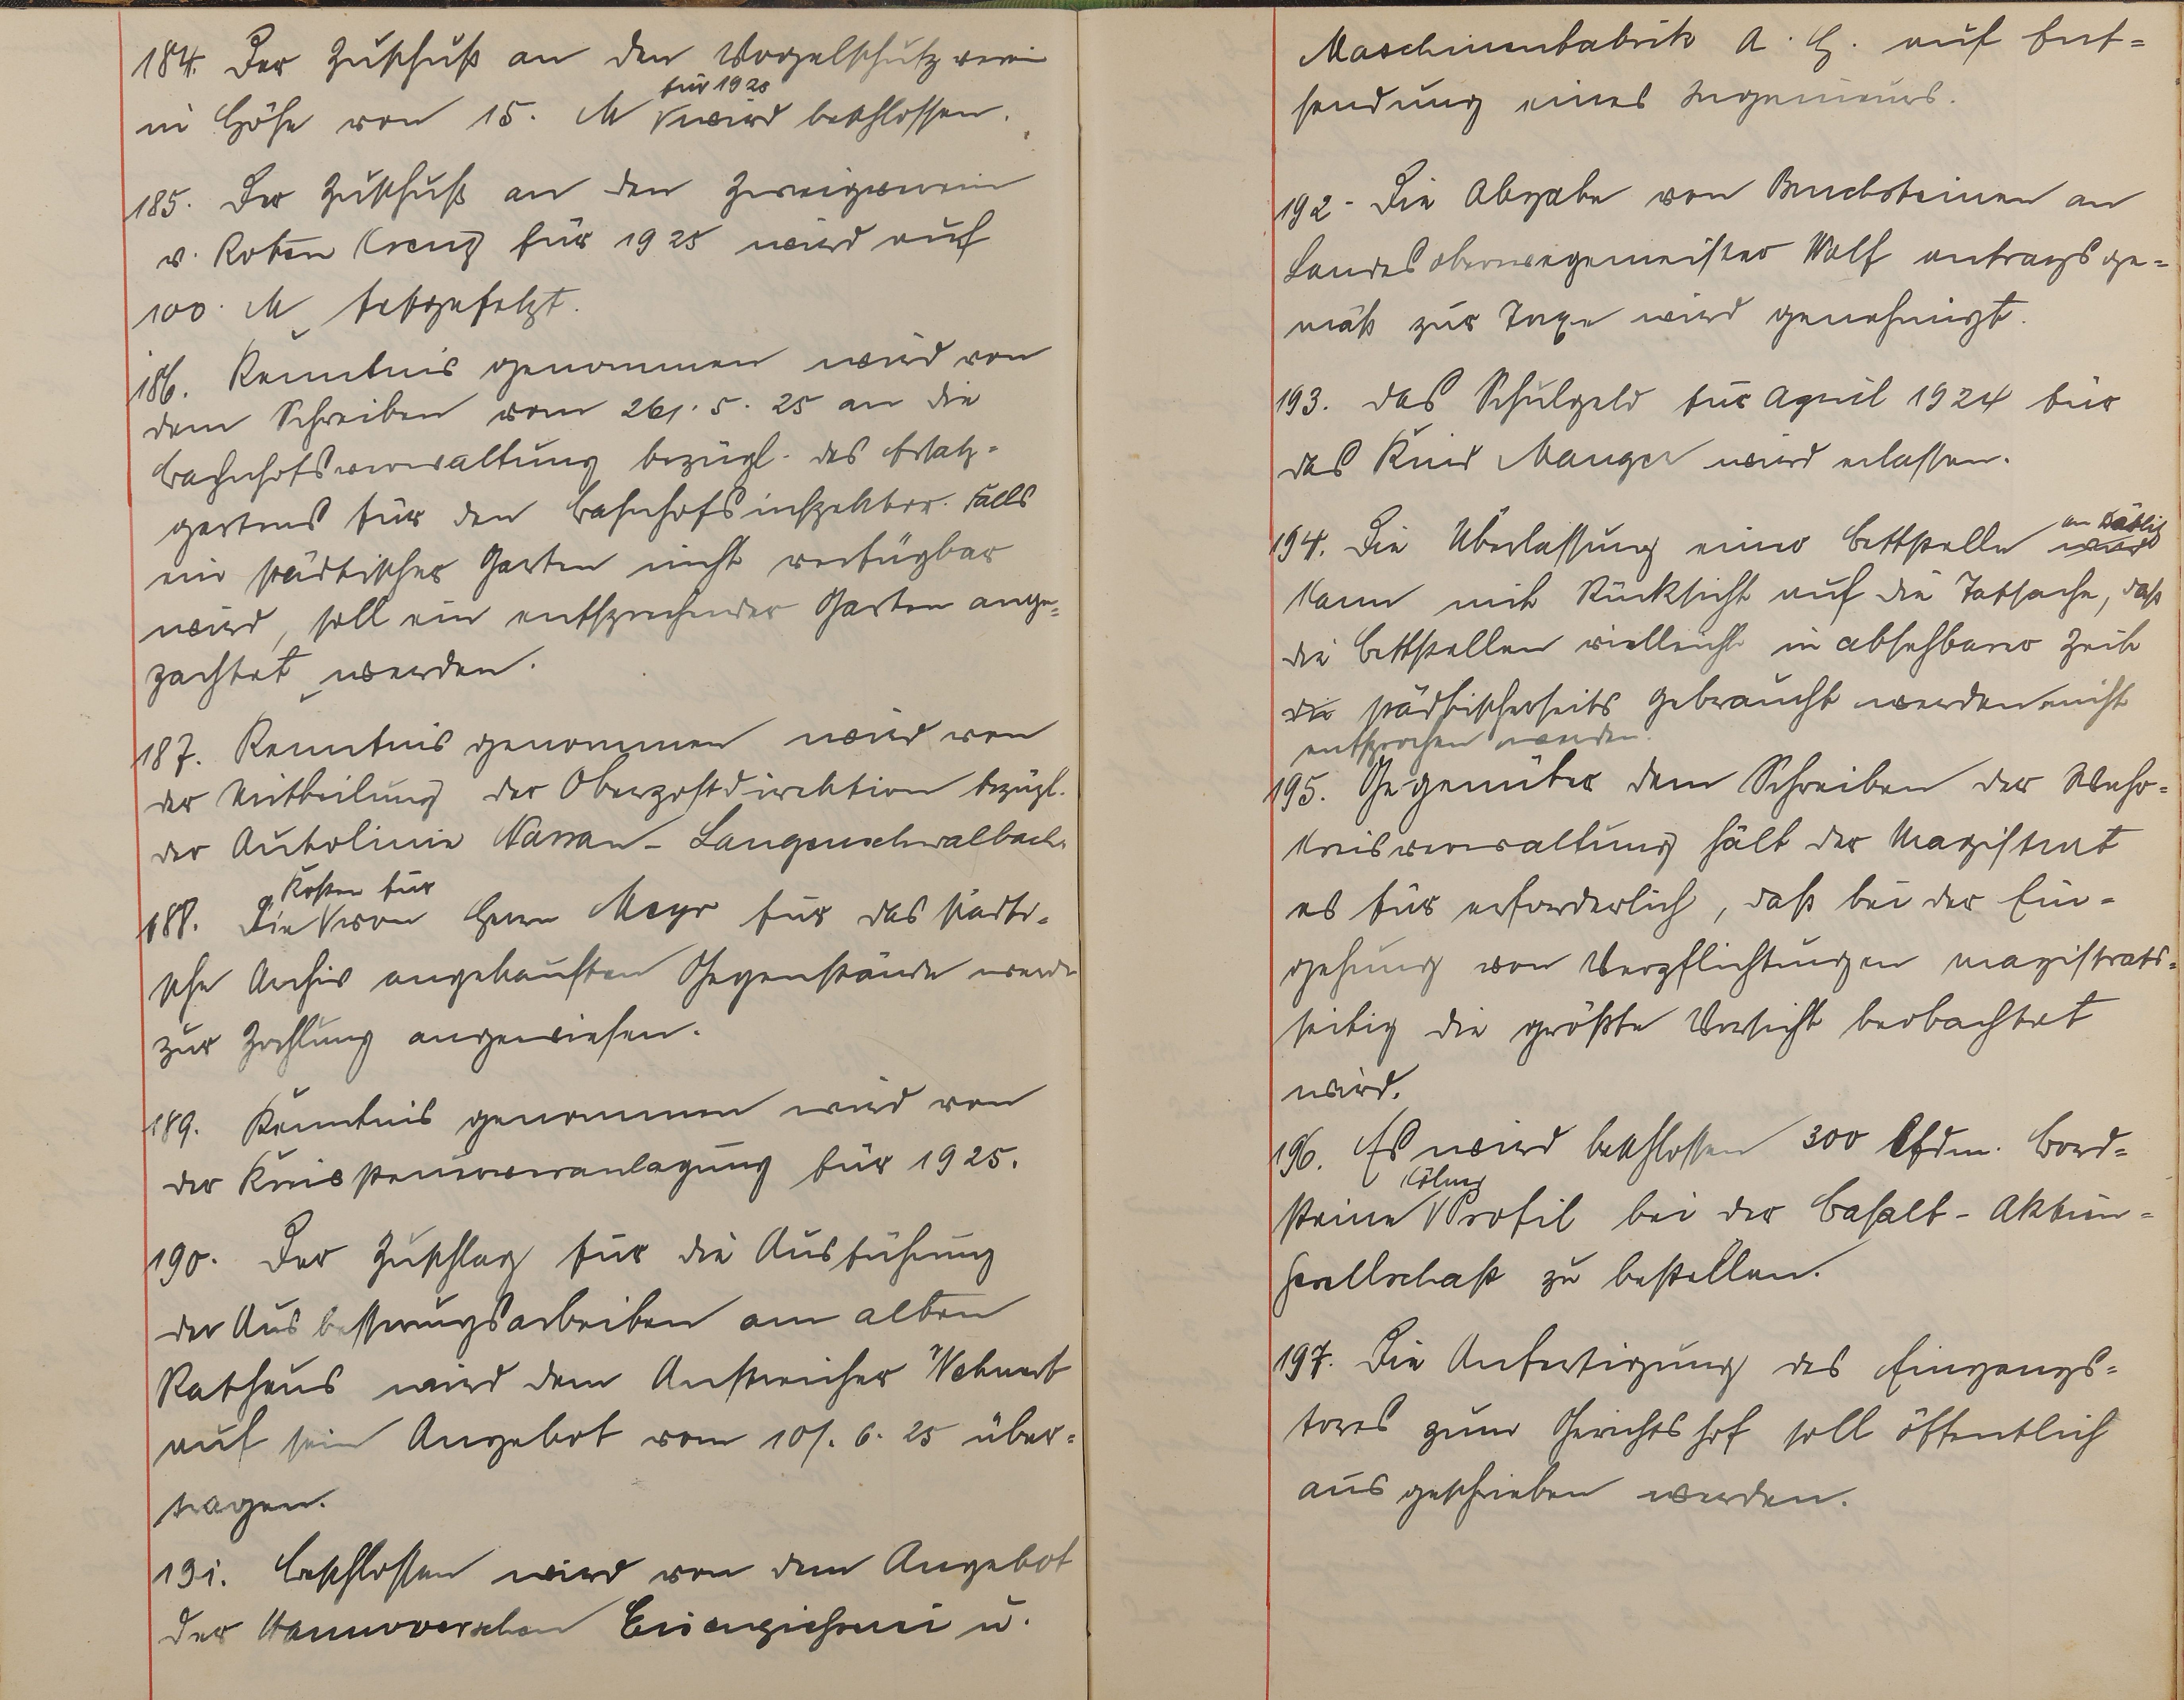 184. Der Zuschuß an den Vogelschutzverein
für 1925
in Höhe von 15. M wird beschlossen.
185. Der Zuschuß an den Zweigverein
v. Roten Creuz für 1925 wird auf
100. M festgesetzt.
186. Kenntnis genommen wird von
dem Schreiben vom 26/. 5. 25 an die
Bahnhofsverwaltung bezügl. des Ersatz-
gartens für den Bahnhofsinspektor. Falls
ein städtischer Garten nicht verfügbar
wird, soll ein entsprechender Garten ange-
pachtet werden.
187. Kenntnis genommen wird von
der Mitteilung der Oberpostdirektion bezügl.
der Autolinie Nassau - Langenschwalbach.
Kosten für
188. Die von Herrn Meyr für das städti-
sche Archiv angekauften Gegenstände werden
zur Zahlung angewiesen.
189. Kenntnis genommen wird von
der Kreissteuerveranlagung für 1925.
190. Der Zuschlag für die Ausführung
der Ausbesserungsarbeiten am alten
Rathaus wird dem Anstreicher
auf sein Angebot vom 10/. 6. 25 über-
tragen.
191. Beschlossen wird von dem Angebot
der Hannoverschen Eisengießerei u.
Maschinenfabrik A. G. auf Ent-
sendung eines Ingenieurs.
192. Die Abgabe von Bruchsteinen an
Landesoberwegemeister Wolf antragsge-
mäß zur Taxe wird genehmigt.
193. Das Schulgeld für April 1924 für
das Kind Manger wird erlassen.
an
194. Die Überlassung einer Bettstelle wird
kann mit Rücksicht auf die Tatsache, daß
die Bettstellen vielleicht in absehbarer Zeit
die städtischerseits gebraucht werden nicht
entsprochen werden.
195. Gegenüber dem Schreiben der Wehr-
kreisverwaltung hält der Magistrat
es für erforderlich, daß bei der Ein-
gehung von Verpflichtungen magistrats-
seitig die größte Vorsicht beobachtet
wird.
196. Es wird beschlossen 300 lfdm. Bord-
Cölner
steine Profil bei der Basalt - Aktien-
Gesellschaft zu bestellen.
197. Die Anfertigung des Eingangs-
tores zum Gerichtshof soll öffentlich
ausgeschrieben werden.